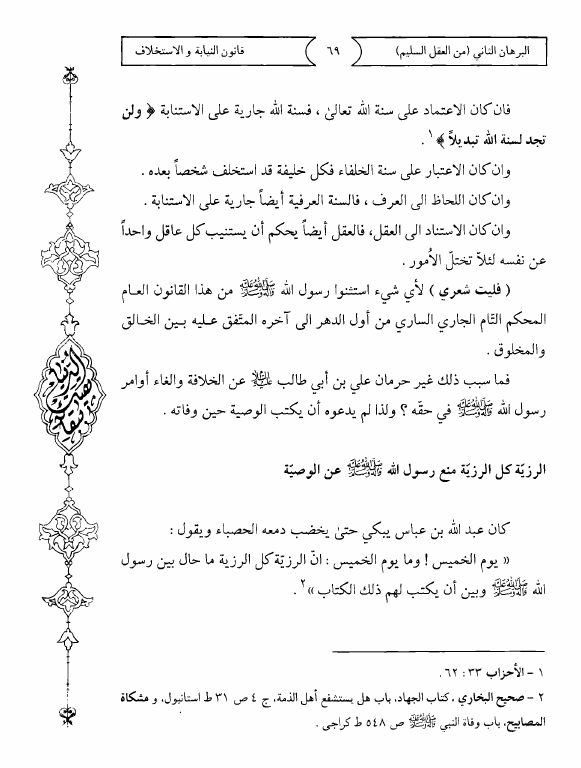 البرهان الثاني (من العقل السليم) ٦٩ قانون النيابة و الاستخلاف
فان كان الاعتماد على سنة الله تعالىٰ ، فسنة الله جارية على الاستنابة ﴿ ولن
تجد لسنة الله تبديلاً ﴾١ .
وان كان الاعتبار على سنة الخلفاء فكل خليفة قد استخلف شخصاً بعده .
وان كان اللحاظ الى العرف ، فالسنة العرفية أيضاً جارية على الاستنابة .
وان كان الاستناد الى العقل، فالعقل أيضاً يحكم أن يستنيب كل عاقل واحداً
عن نفسه لئلاّ تختلّ الأمور .
( فليت شعري ) لأي شيء استثنوا رسول الله ﷺ من هذا القانون العام
المحكم التّام الجاري الساري من أول الدهر الى آخره المتّفق عليه بين الخالق
والمخلوق .
فما سبب ذلك غير حرمان علي بن أبي طالب عليه السلام عن الخلافة والغاء أوامر
رسول الله ﷺ في حقّه ؟ ولذا لم يدعوه أن يكتب الوصية حين وفاته .
الرزيّة كل الرزيّة منع رسول الله ﷺ عن الوصيّة
كان عبد الله بن عباس يبكي حتىٰ يخضب دمعه الحصباء ويقول :
« يوم الخميس ! وما يوم الخميس : انّ الرزيّة كل الرزية ما حال بين رسول
الله ﷺ وبين أن يكتب لهم ذلك الكتاب »٢ .
١ - الأحزاب ٣٣ : ٦٢ .
٢ - صحيح البخاري ، كتاب الجهاد، باب هل يستشفع أهل الذمة، ج ٤ ص ٣١ ط استانبول، و مشكاة
المصابيح، باب وفاة النبي ﷺ ص ٥٤٨ ط كراچي .